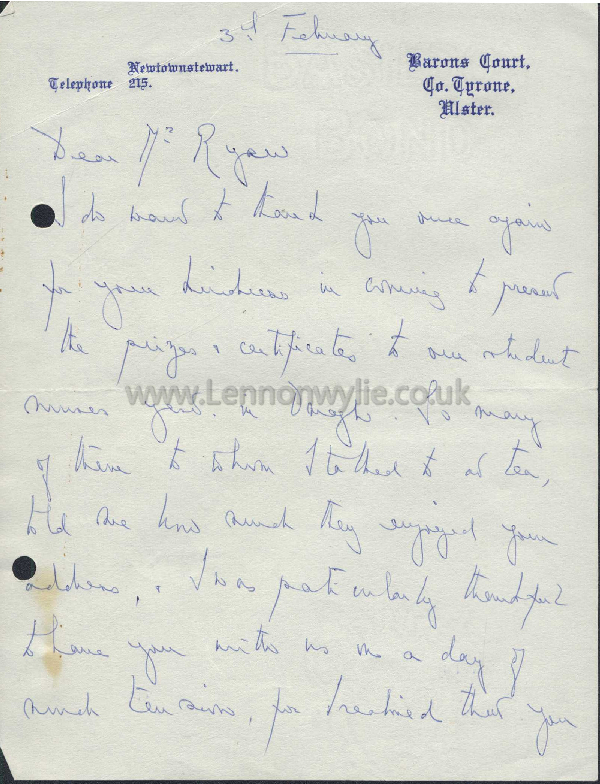 3rd February
Newtownstewart.
Telephone 215.
Barons Court,
Co. Tyrone,
Ulster.
Dear Mr Ryan
I do want to thank you once again
for your kindness in coming to present
the prizes & certificates to our student
nurses yesd. in Omagh. So many
www.Lennonwylie.co.uk
of them to whom I talked to at tea,
told me how much they enjoyed your
address, & I was particularly thankful
to have you with us on a day of
much tension, for I realised that you